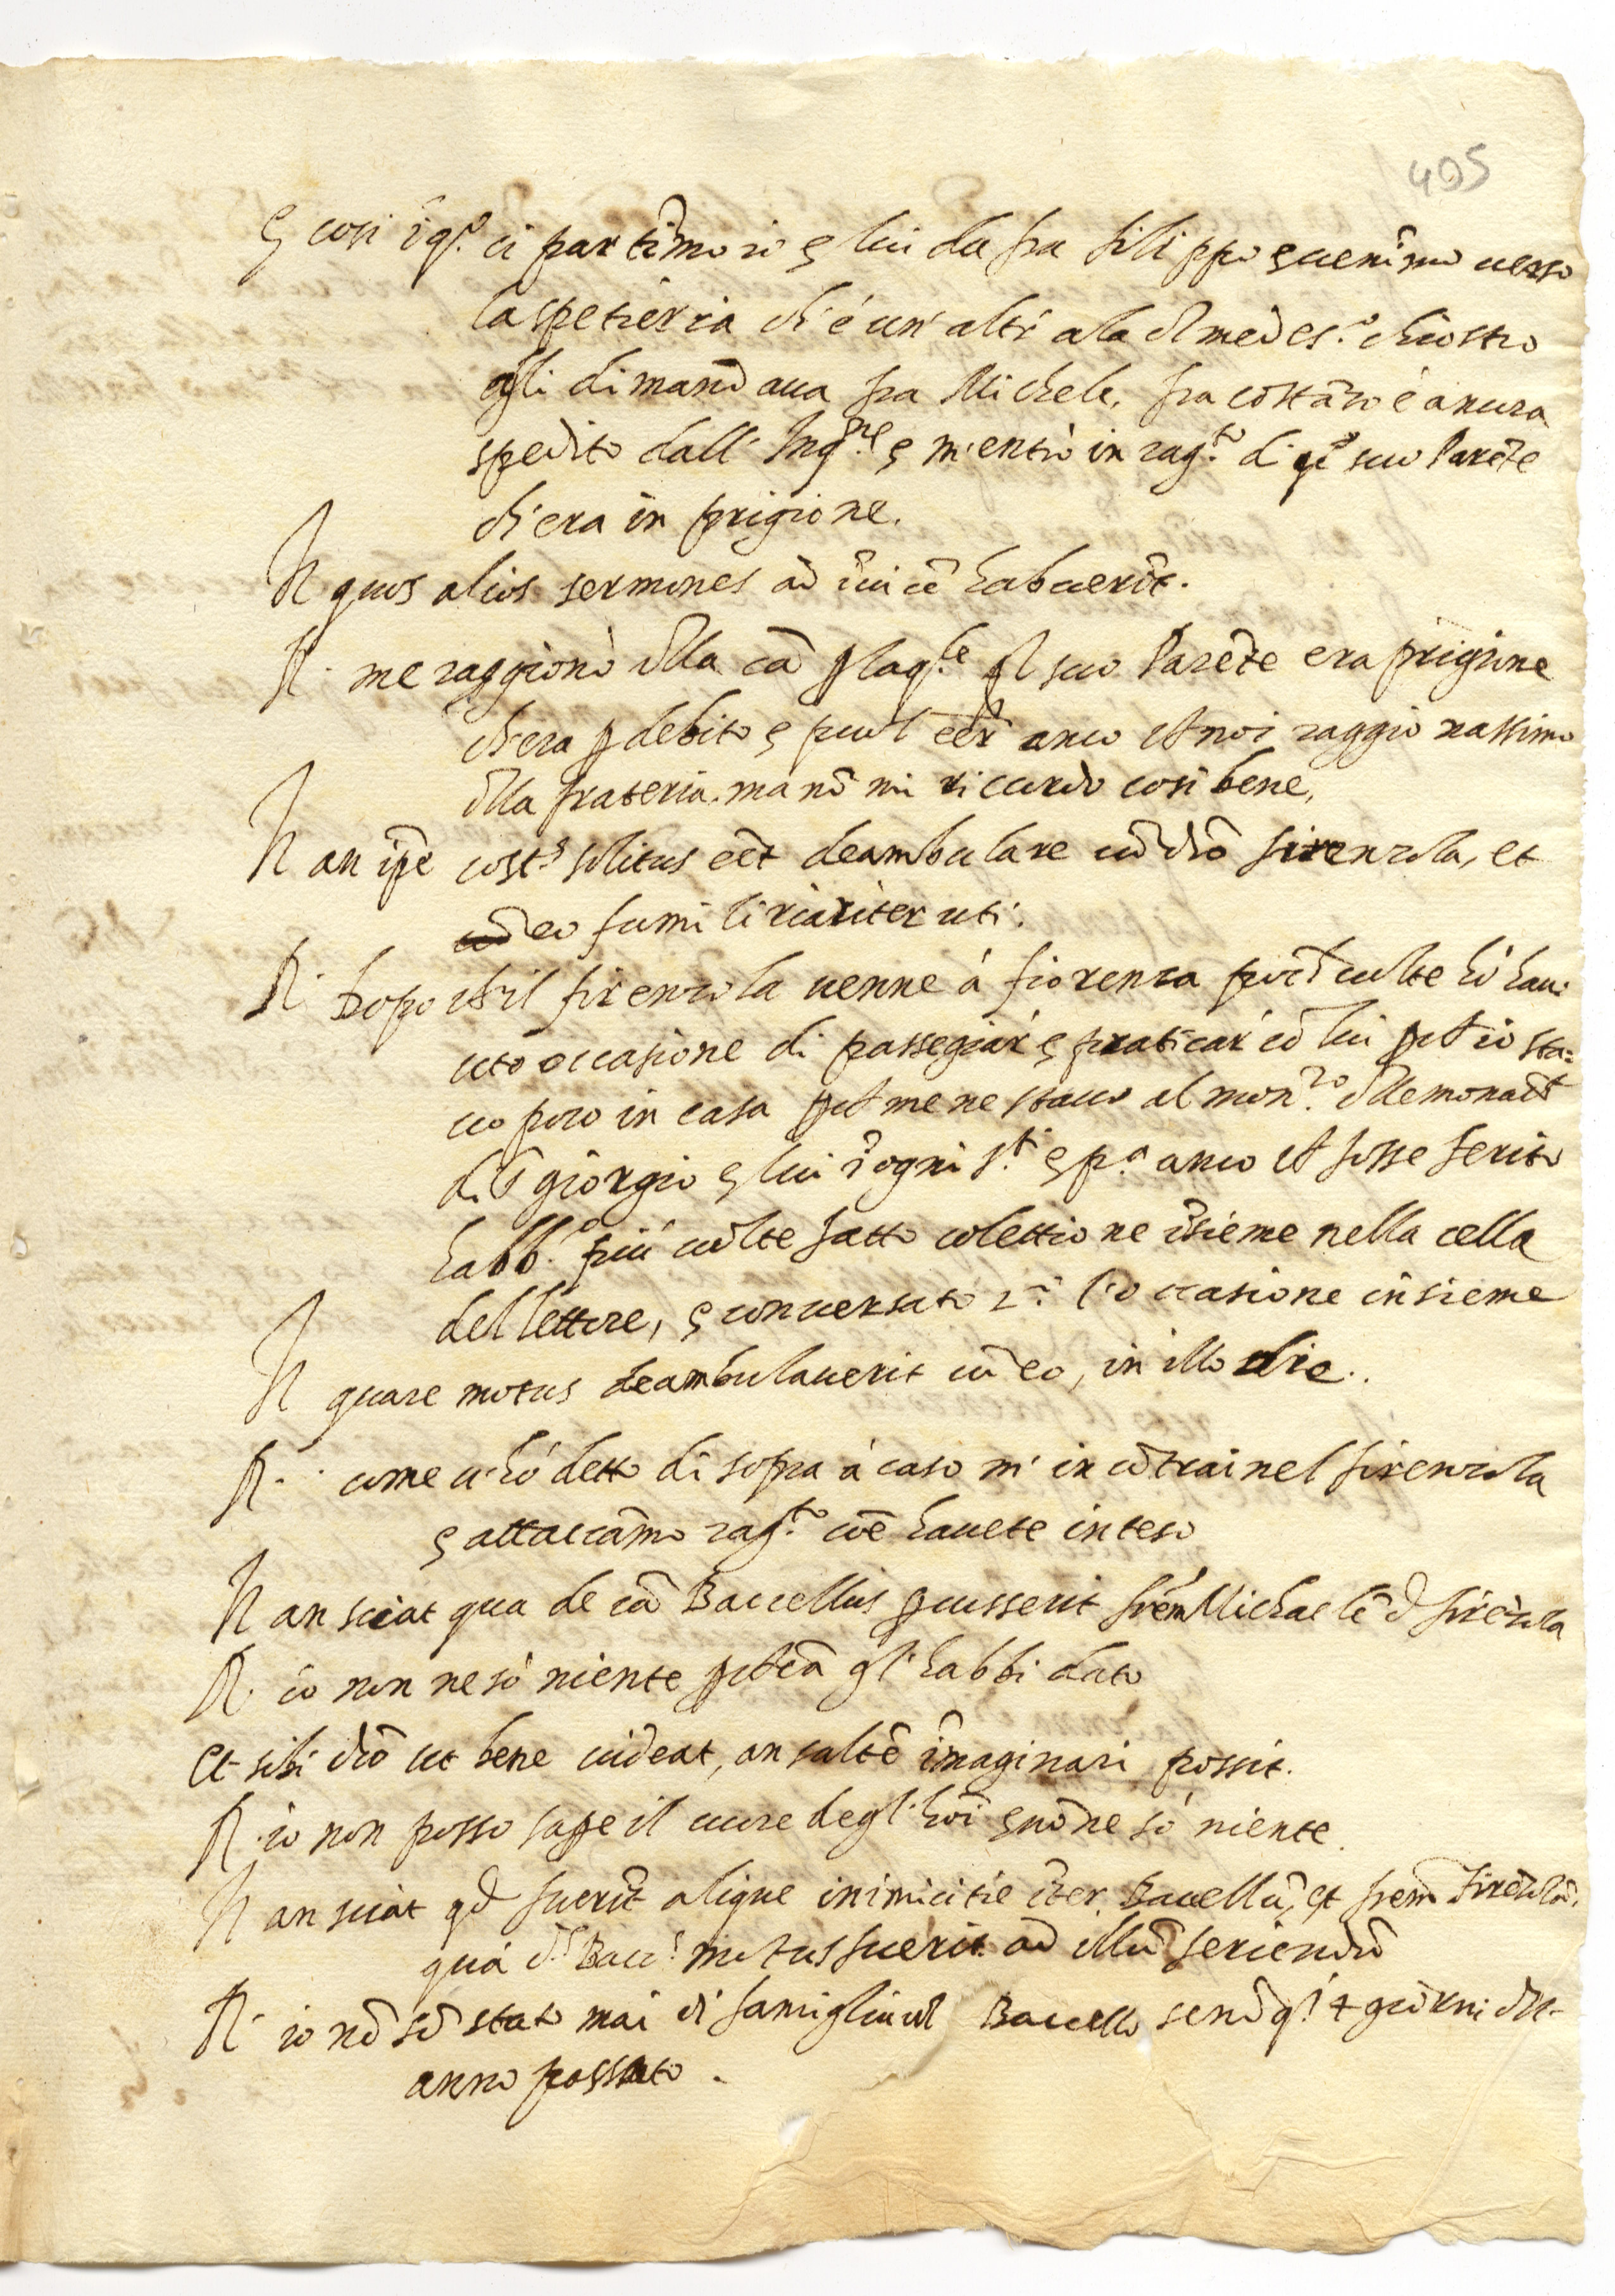 405
e cosi i q.º ci partimo io e lui da fra filippo e uenimo uerso
la spetieria ch'è un' altr' ala dl medes.º chiostro
egli dimandaua fra Michele, fra costãzo è ancura
spedito dall' Inq.ne e m'entrò in rag.to di q.º suo Parẽte
ch'era in prigione.
It quos alios sermones ad inuicẽ habuerĩt.
R. me raggionò dlla cã p laq.le il suo Parẽte era prigione
ch'era p debito e puol eẽr anco ch noi raggionassimo
dlla frateria. ma nõ mi riccordo cosi bene,
It an ipẽ cost.s solitus eẽt deambulare cũ dtõ firenzola, et
eo familiriariter uti.
R. Dopo ch il firenzola uenne à fiorenza poch uolte hò hau:
uto occasione di passegiar e praticar cõ lui pch io sta:
uo poco in casa pch me ne stauo al mon.ro dlle monach
di S giorgio e lui i ogni s.ti e p.a anco ch fosse ferito
habb.º più uolte fatto colettione isieme nella cella
del lettore, e conuersato 2.º l'occasione insieme
It quare motus deambulauerit cũ eo, in illo die.
R. come u'hò detto di sopra à caso m' incõtrai nel firenzola
e attaccamo rag.to cõe hauete inteso
It an sciat qua de cã Baccellus pcusserit frẽm Michaelẽ d firẽzola
R. io non ne sò niente pch cã gl' habbi dato
Et sibi dtõ ut bene uideat, an saltẽ imaginari possit.
R. io non posso sape il cuore degl' hoĩ e nõ ne sò niente.
It an sciat qd fuerĩt alique inimicitie iter Baccellũ, et frẽm firẽzolã,
qua d.s Bacc.s motus fuerit ad illũ feriendũ
R. io nõ sõ stato mai di famiglia col Baccello se nõ q.i 4 giorni dll-
anno passato.